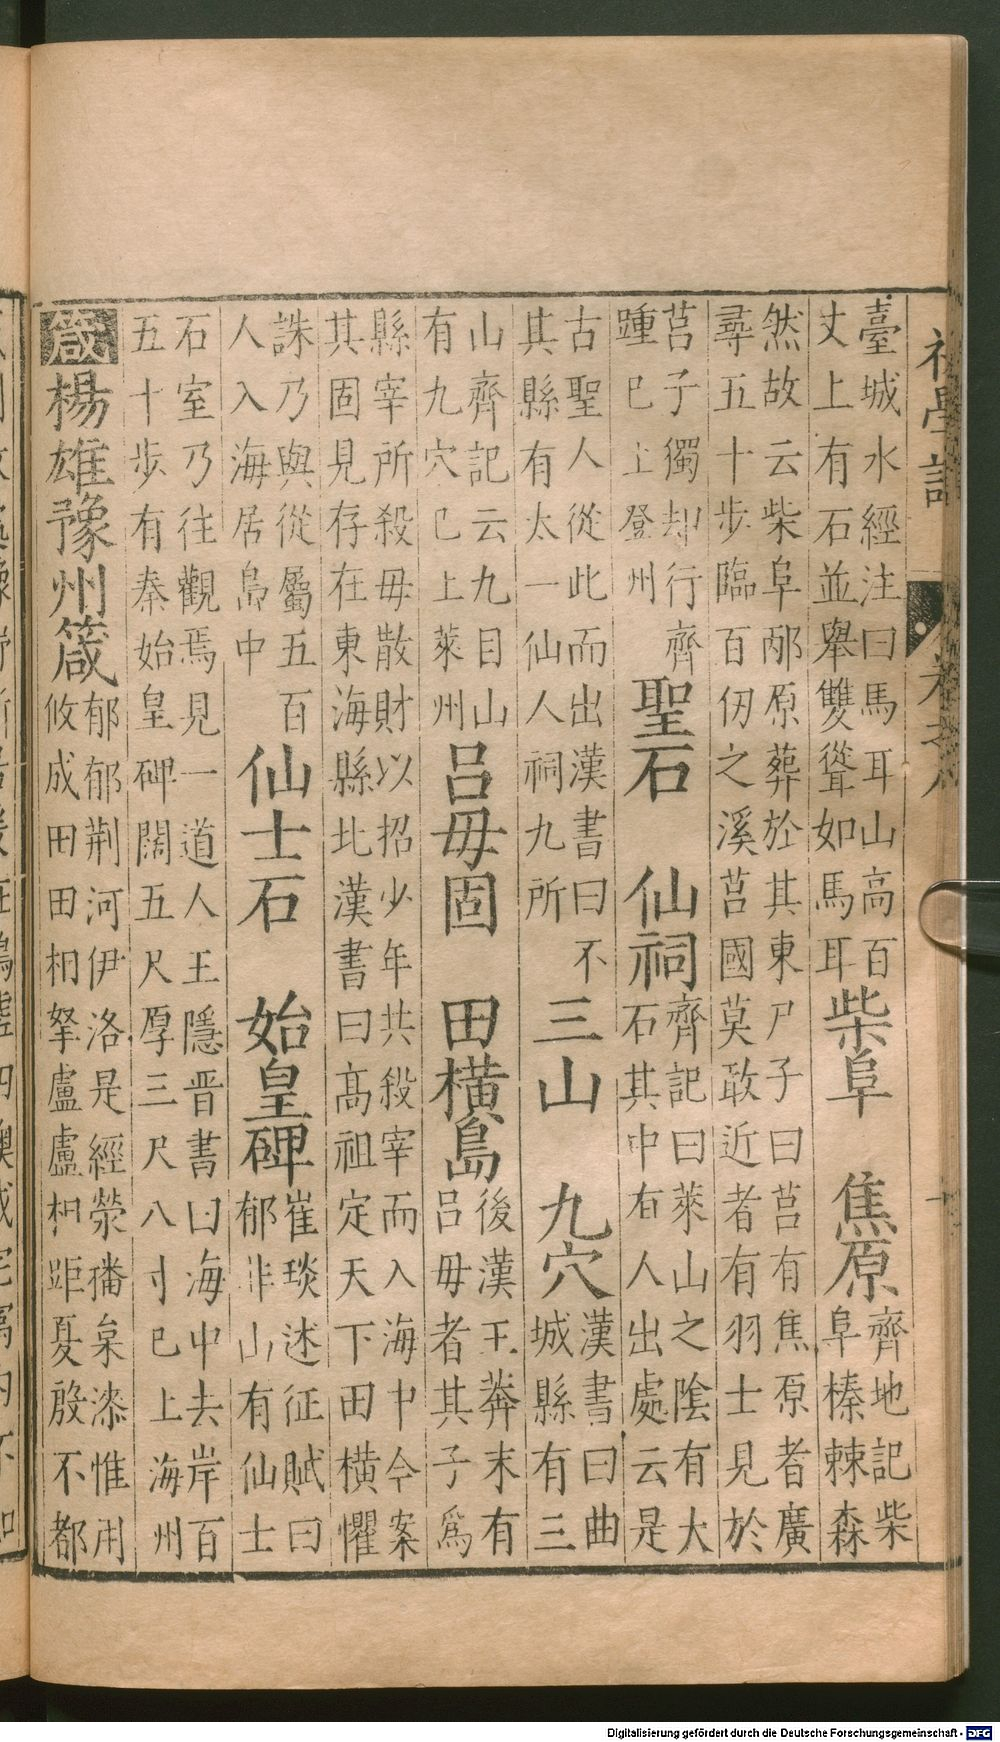 臺城水經注曰馬耳山高百
丈上有石並舉雙聳如馬耳
柴阜　焦原
齊地記柴
阜榛棘森
然故云柴阜邴原葬於其東尸子曰莒有焦原者廣
尋五十步臨百仞之溪莒國莫敢近者有羽士見於
莒子獨却行齊
踵巳上登州
聖石　仙祠
齊記曰萊山之陰有大
石其中有人出處云是
古聖人從此而出漢書曰不
其縣有太一仙人祠九所
三山　九穴
漢書曰曲
城縣有三
山齊記云九目山
有九穴巳上萊州
呂毋固　田橫島
後漢王莽末有
呂毋者其子爲
縣宰所殺毋散財以招少年共殺宰而入海中今案
其固見存在東海縣北漢書曰髙祖定天下田橫懼
誅乃與從屬五百
人入海居島中
仙士石　始皇碑
崔琰述征賦曰
郁非山有仙士
石室乃往觀焉見一道人王隱晋書曰海中去岸百
五十步有秦始皇碑闊五尺厚三尺八寸巳上海州
箴楊雄豫州箴
郁郁荆河伊洛是經滎播枲漆惟用
攸成田田相拏盧盧相距夏殷不都
Digitalisierung gefördert durch die Deutsche Forschungsgemeinschaft - DFG